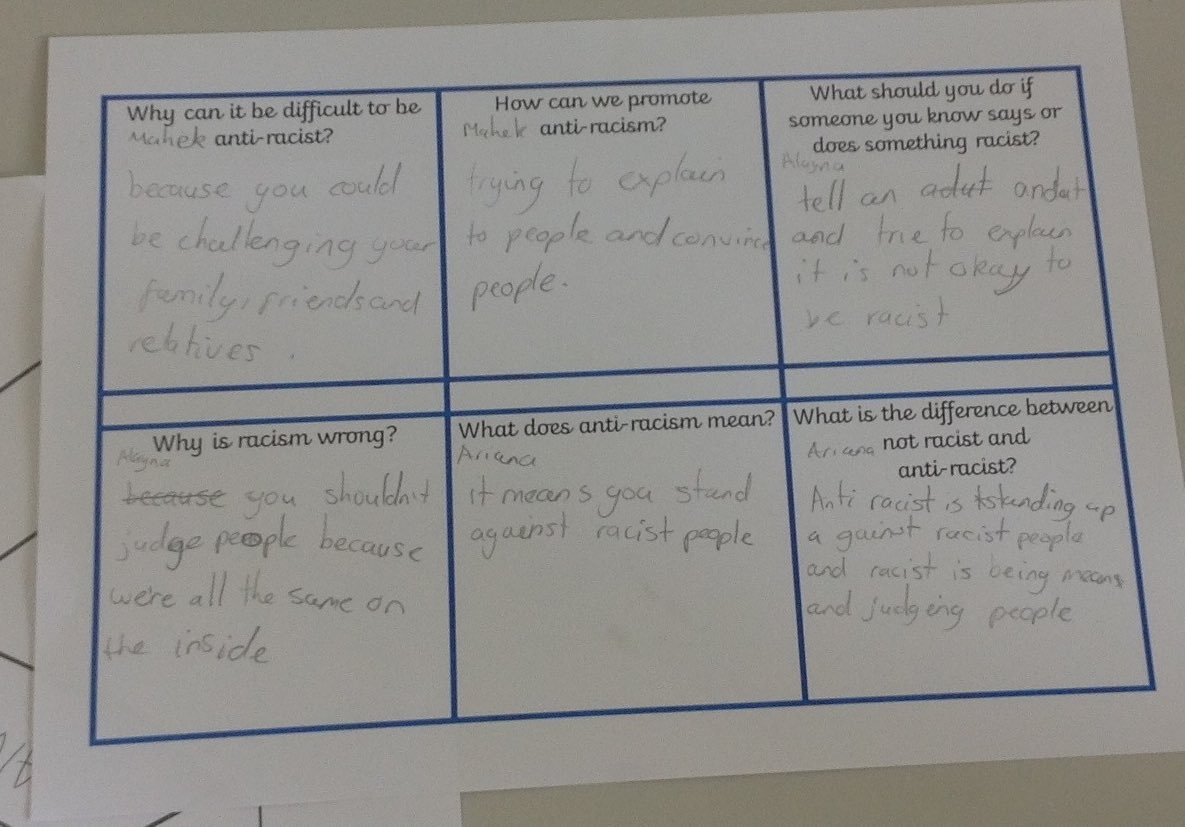 Why can it be difficult to be
Mahek anti-racist?
because you could
be challenging your
family, friends and
relatives.
How can we promote
Mahek anti-racism?
trying to explain
to people and convince
people.
What should you do if
someone you know says or
does something racist?
Alayna
tell an adut
and trie to explain
it is not okay to
be racist
Why is racism wrong?
Alayna
because you shouldn't
judge people because
were all the same on
the inside
What does anti-racism mean?
Ariana
it means you stand
against racist people
What is the difference between
Ariana not racist and
anti-racist?
Anti racist is standing up
a gainst racist people
and racist is being means
and judgeing people